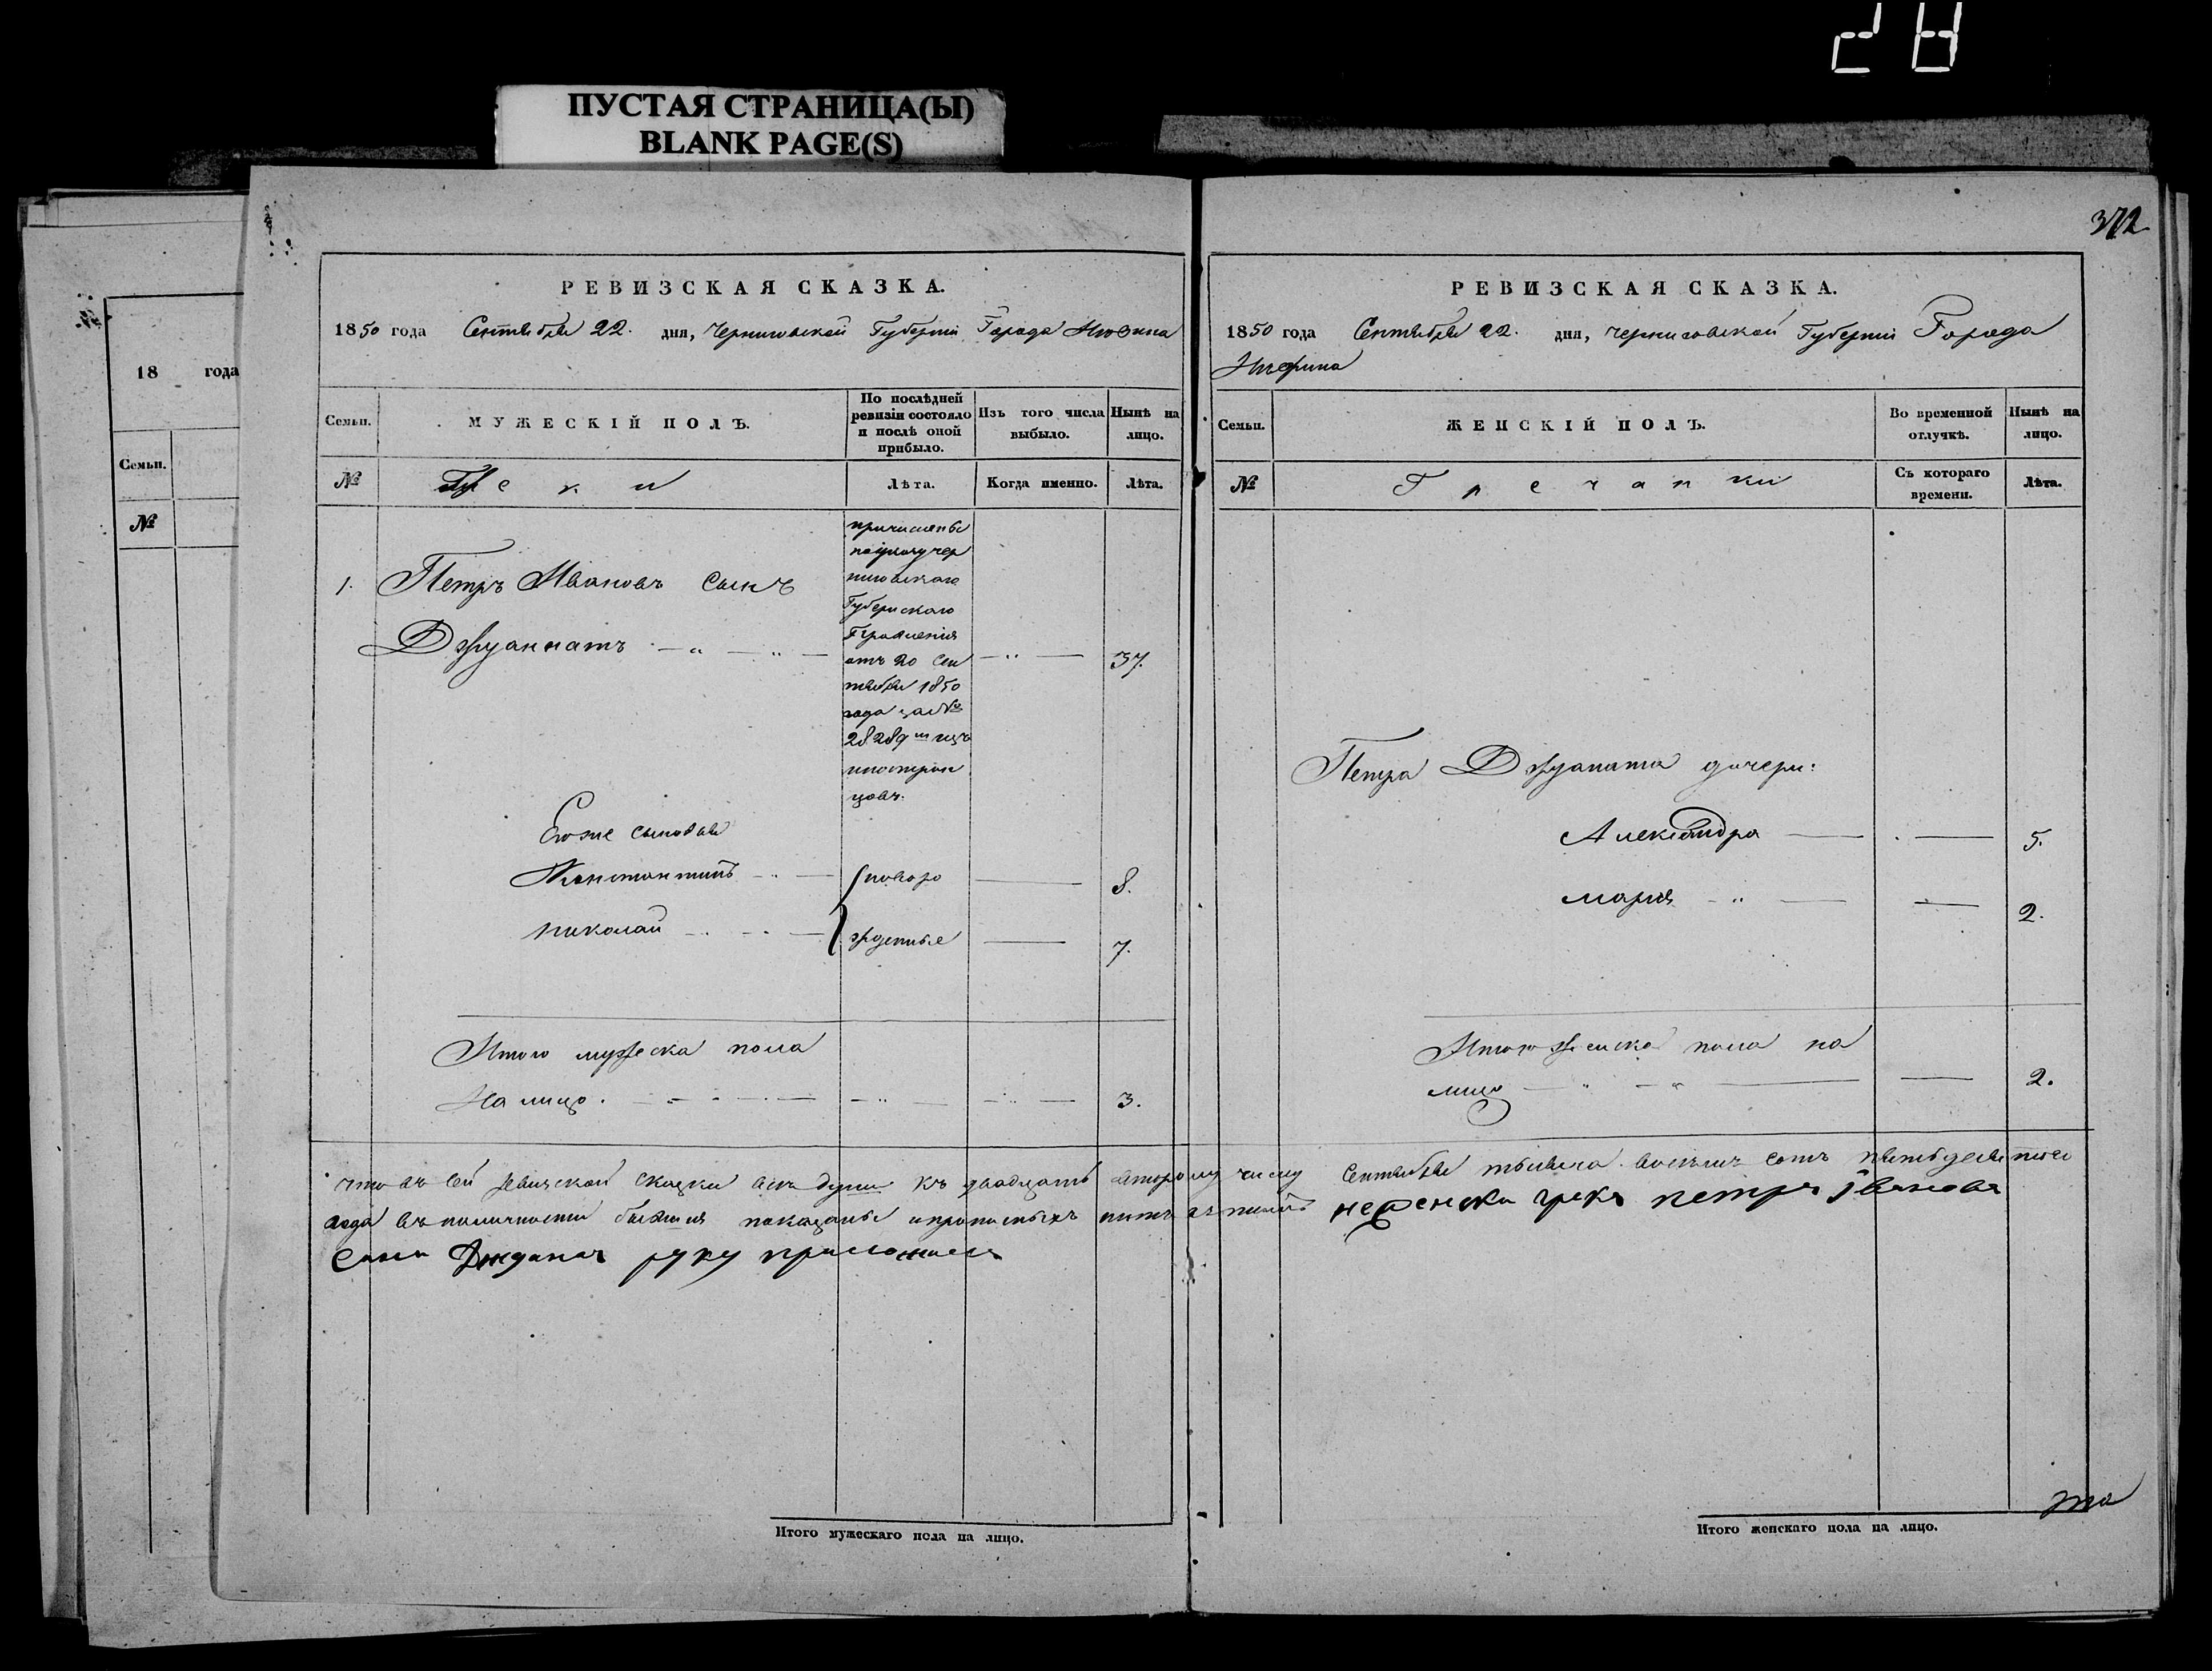 ПУСТАЯ СТРАНИЦА(Ы)
BLANK PAGE(S)
18 года
Семьи.
№
РЕВИЗСКАЯ СКАЗКА.
1850 года Сентября 22. дня, Черниговской Губерніи Города Нѣжина
Семьи.
МУЖЕСКІЙ ПОЛЪ.
По послѣдней ревизіи состояло и послѣ оной прибыло.
Изъ того числа выбыло.
Нынѣ на лицо.
№
Греки
Лѣта.
Когда именно.
Лѣта.
1. Петръ Ивановъ Сынъ
Джуанатъ 37.
причислены
по указу чер
ниговскаго
Губернскаго
Правленія
отъ 20 сен
тября 1850
года за №
28289 изъ
иностран
цовъ.
Его же сыновья
Константинъ новоро 8.
Николай жденные 7.
Итого мужеска пола
На лицо. 3.
Итого мужескаго пола на лицо.
372
РЕВИЗСКАЯ СКАЗКА.
1850 года Сентября 22. дня, Черниговской Губерніи Города
Нѣжина
Семьи.
ЖЕНСКІЙ ПОЛЪ.
Во временной отлучкѣ.
Нынѣ на лицо.
№
Гречанки
Съ котораго времени.
Лѣта.
Петра Джуаната дочери:
Александра 5.
Марія 2.
Итого женска пола на
лицо 2.
что въ сей ревизской сказки всѣ души къ двадцать второму числу Сентября тысяча восемь сотъ пятьдесятого
года въ наличности бывшія показаны и прописныхъ нѣтъ нѣженски грекъ петръ Iвановъ
Сынъ руку приложилъ
Итого женскаго пола на лицо.